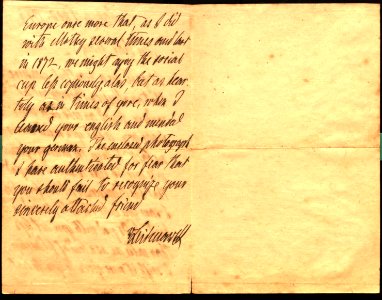 Europe once more that, as I did
with Motley several times and last
in 1872, we might enjoy the social
cup less copiously alas, but as hear-
tily as in times of yore, when I
learned your english and mended
your german. The enclosed photograph
I have authenticated for fear that
you should fail to recognize your
sincerely attached friend
vBismarck